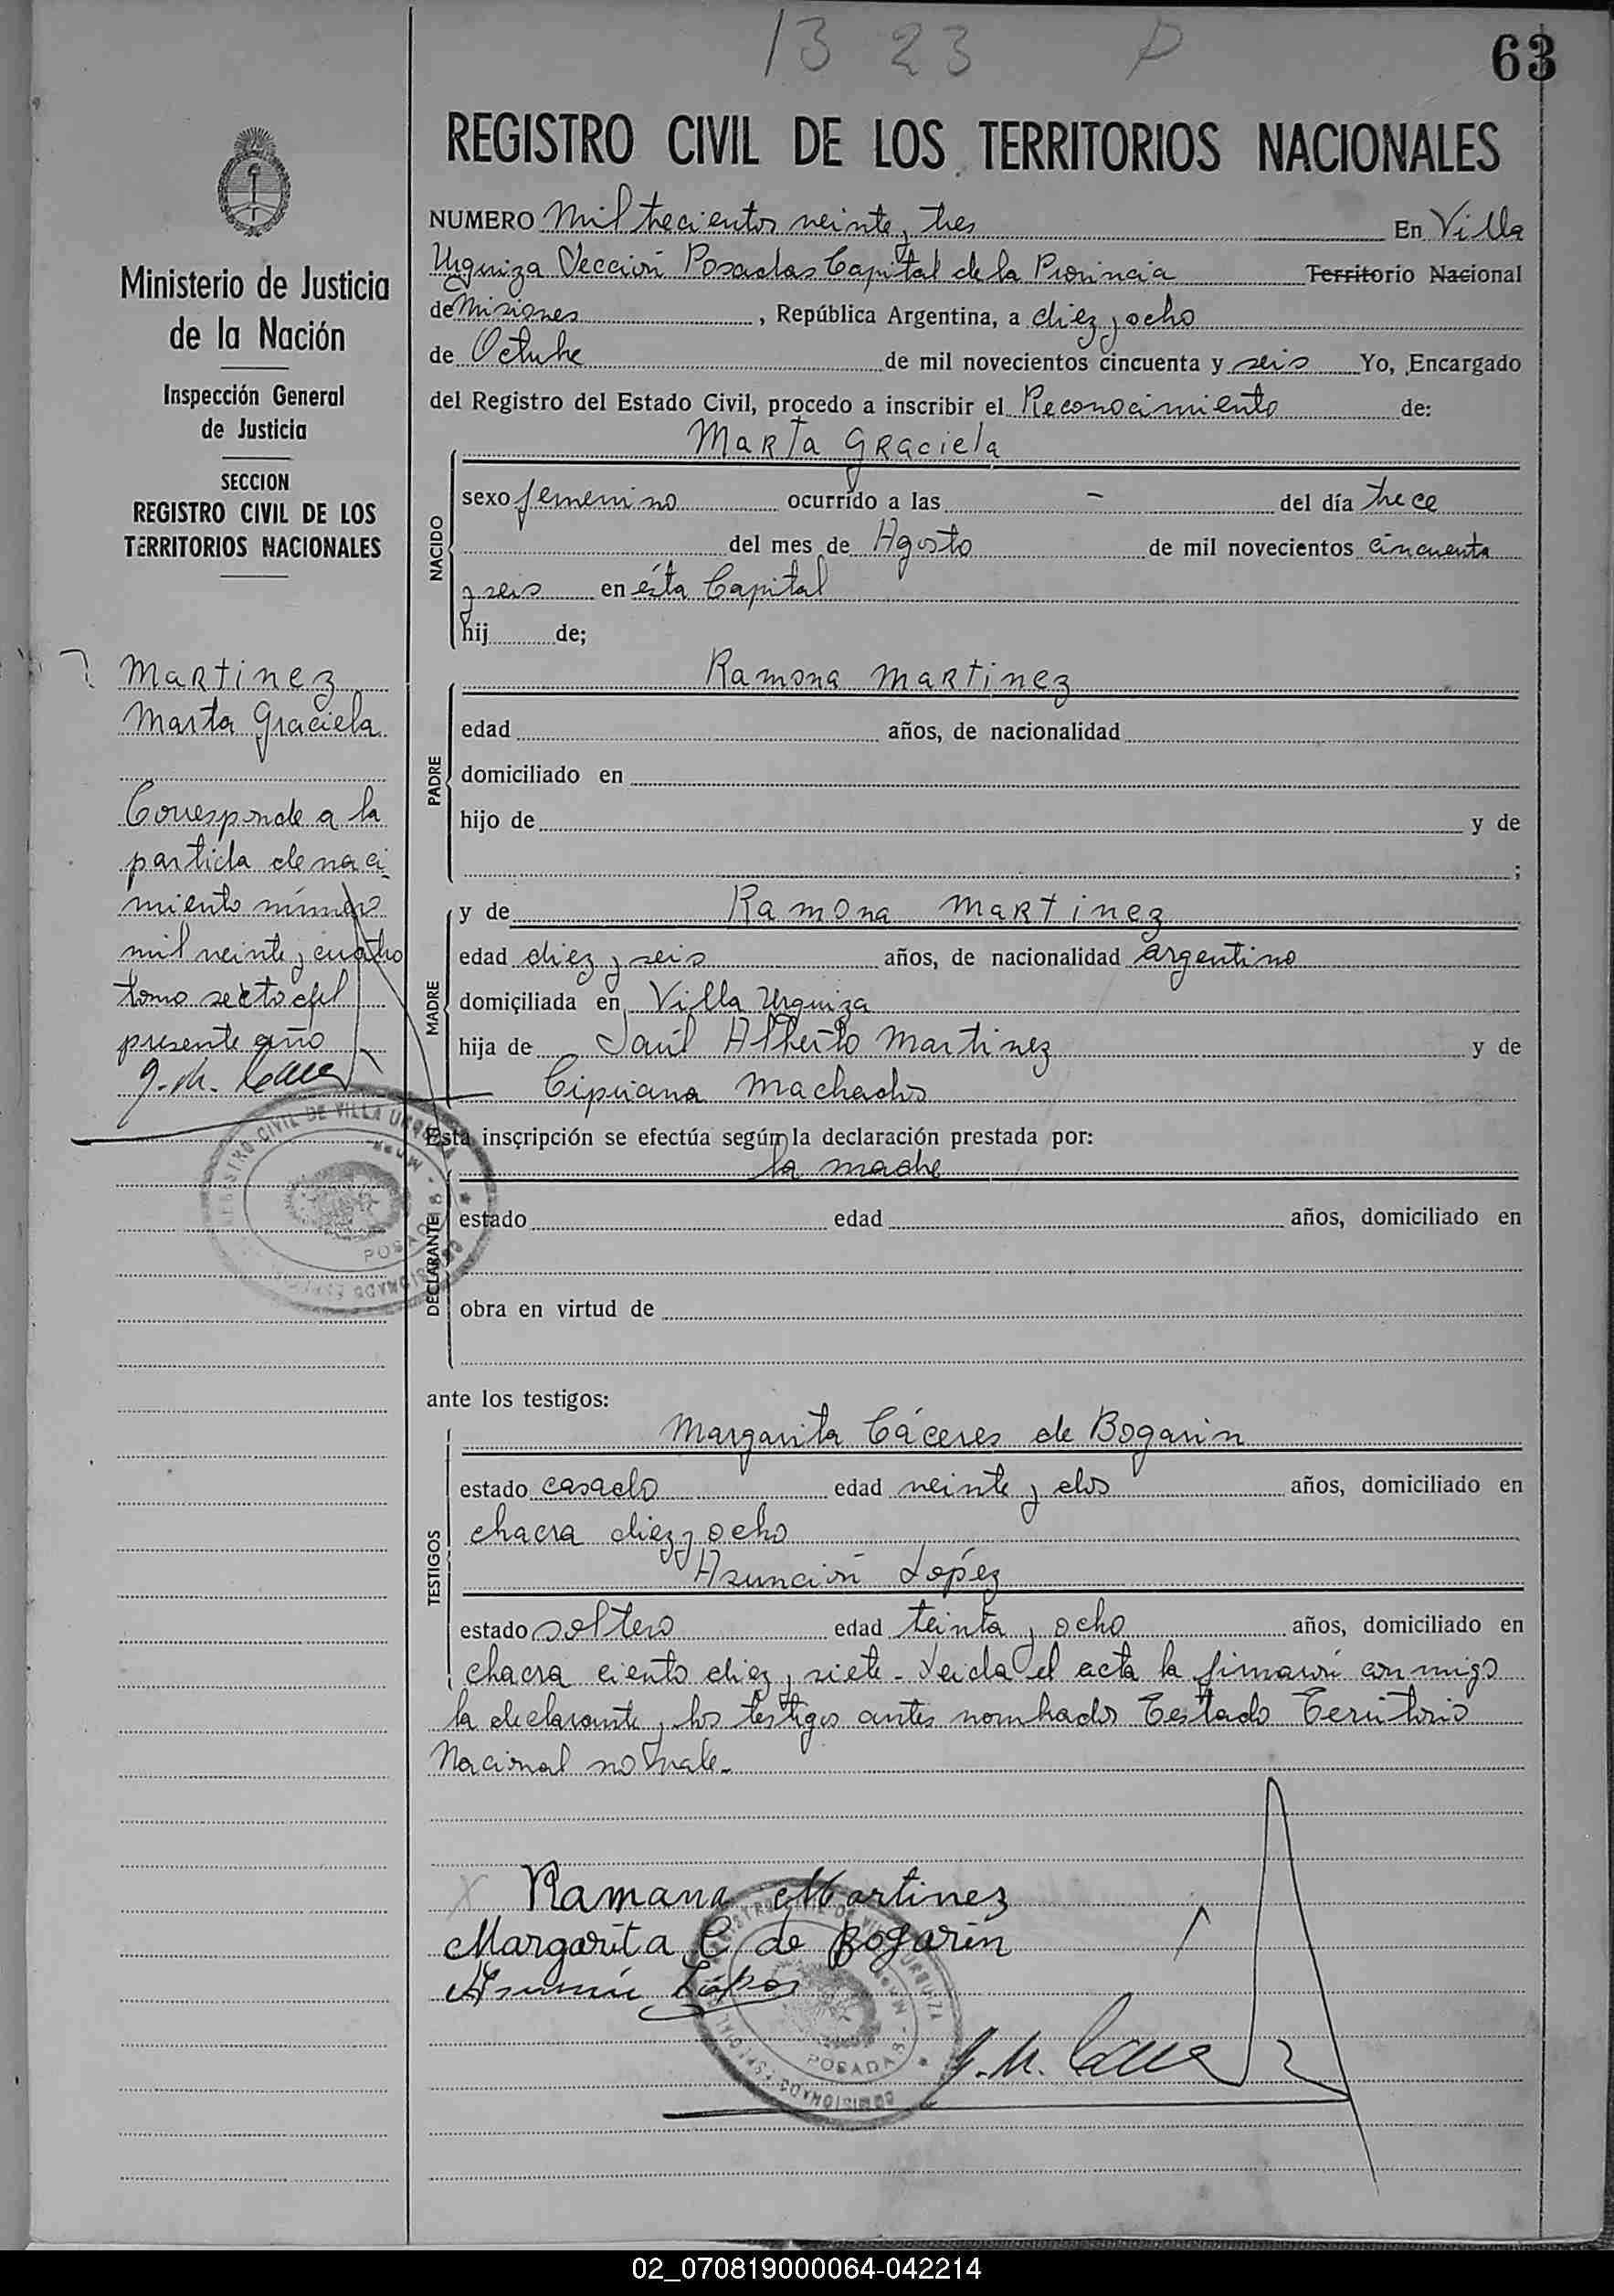 13 23 P
63
REGISTRO CIVIL DE LOS TERRITORIOS NACIONALES
NUMERO Mil trecientos veinte y tres En Villa
Urquiza Sección Posadas Capital de la Provincia Territorio Nacional
de Misiones, República Argentina, a diez y ocho
de Octubre de mil novecientos cincuenta y seis Yo, Encargado
del Registro del Estado Civil, procedo a inscribir el Reconocimiento de:
Marta Graciela
NACIDO
sexo femenino ocurrido a las - del día trece
del mes de Agosto de mil novecientos cincuenta
y seis en ésta Capital
hij de;
PADRE
Ramona Martinez
edad años, de nacionalidad
domiciliado en
hijo de y de
;
MADRE
y de Ramona Martinez
edad diez y seis años, de nacionalidad argentino
domiciliada en Villa Urquiza
hija de Saúl Alberto Martinez y de
Cipriana Machado
Esta inscripción se efectúa según la declaración prestada por:
la madre
DECLARANTE
estado edad años, domiciliado en
obra en virtud de
ante los testigos:
TESTIGOS
Margarita Cáceres de Bogarin
estado casado edad veinte y dos años, domiciliado en
chacra diez y ocho
Asunción López
estado soltero edad treinta y ocho años, domiciliado en
chacra ciento diez y siete - Leida el acta la firmaron conmigo
la declarante y los testigos antes nombrados Testado Territorio
Nacional no vale.-
X Ramana Martinez
Margarita C de Bogarin
Asunción López
Ministerio de Justicia
de la Nación
Inspección General
de Justicia
SECCION
REGISTRO CIVIL DE LOS
TERRITORIOS NACIONALES
Martinez
Marta Graciela
Corresponde a la
partida de naci-
miento número
mil veinte y cuatro
tomo sexto del
presente año
REGISTRO CIVIL DE VILLA URQUIZA
POSADAS
REGISTRO CIVIL DE VILLA URQUIZA
POSADAS
COMISIONADO ESPECIAL
02_070819000064-042214